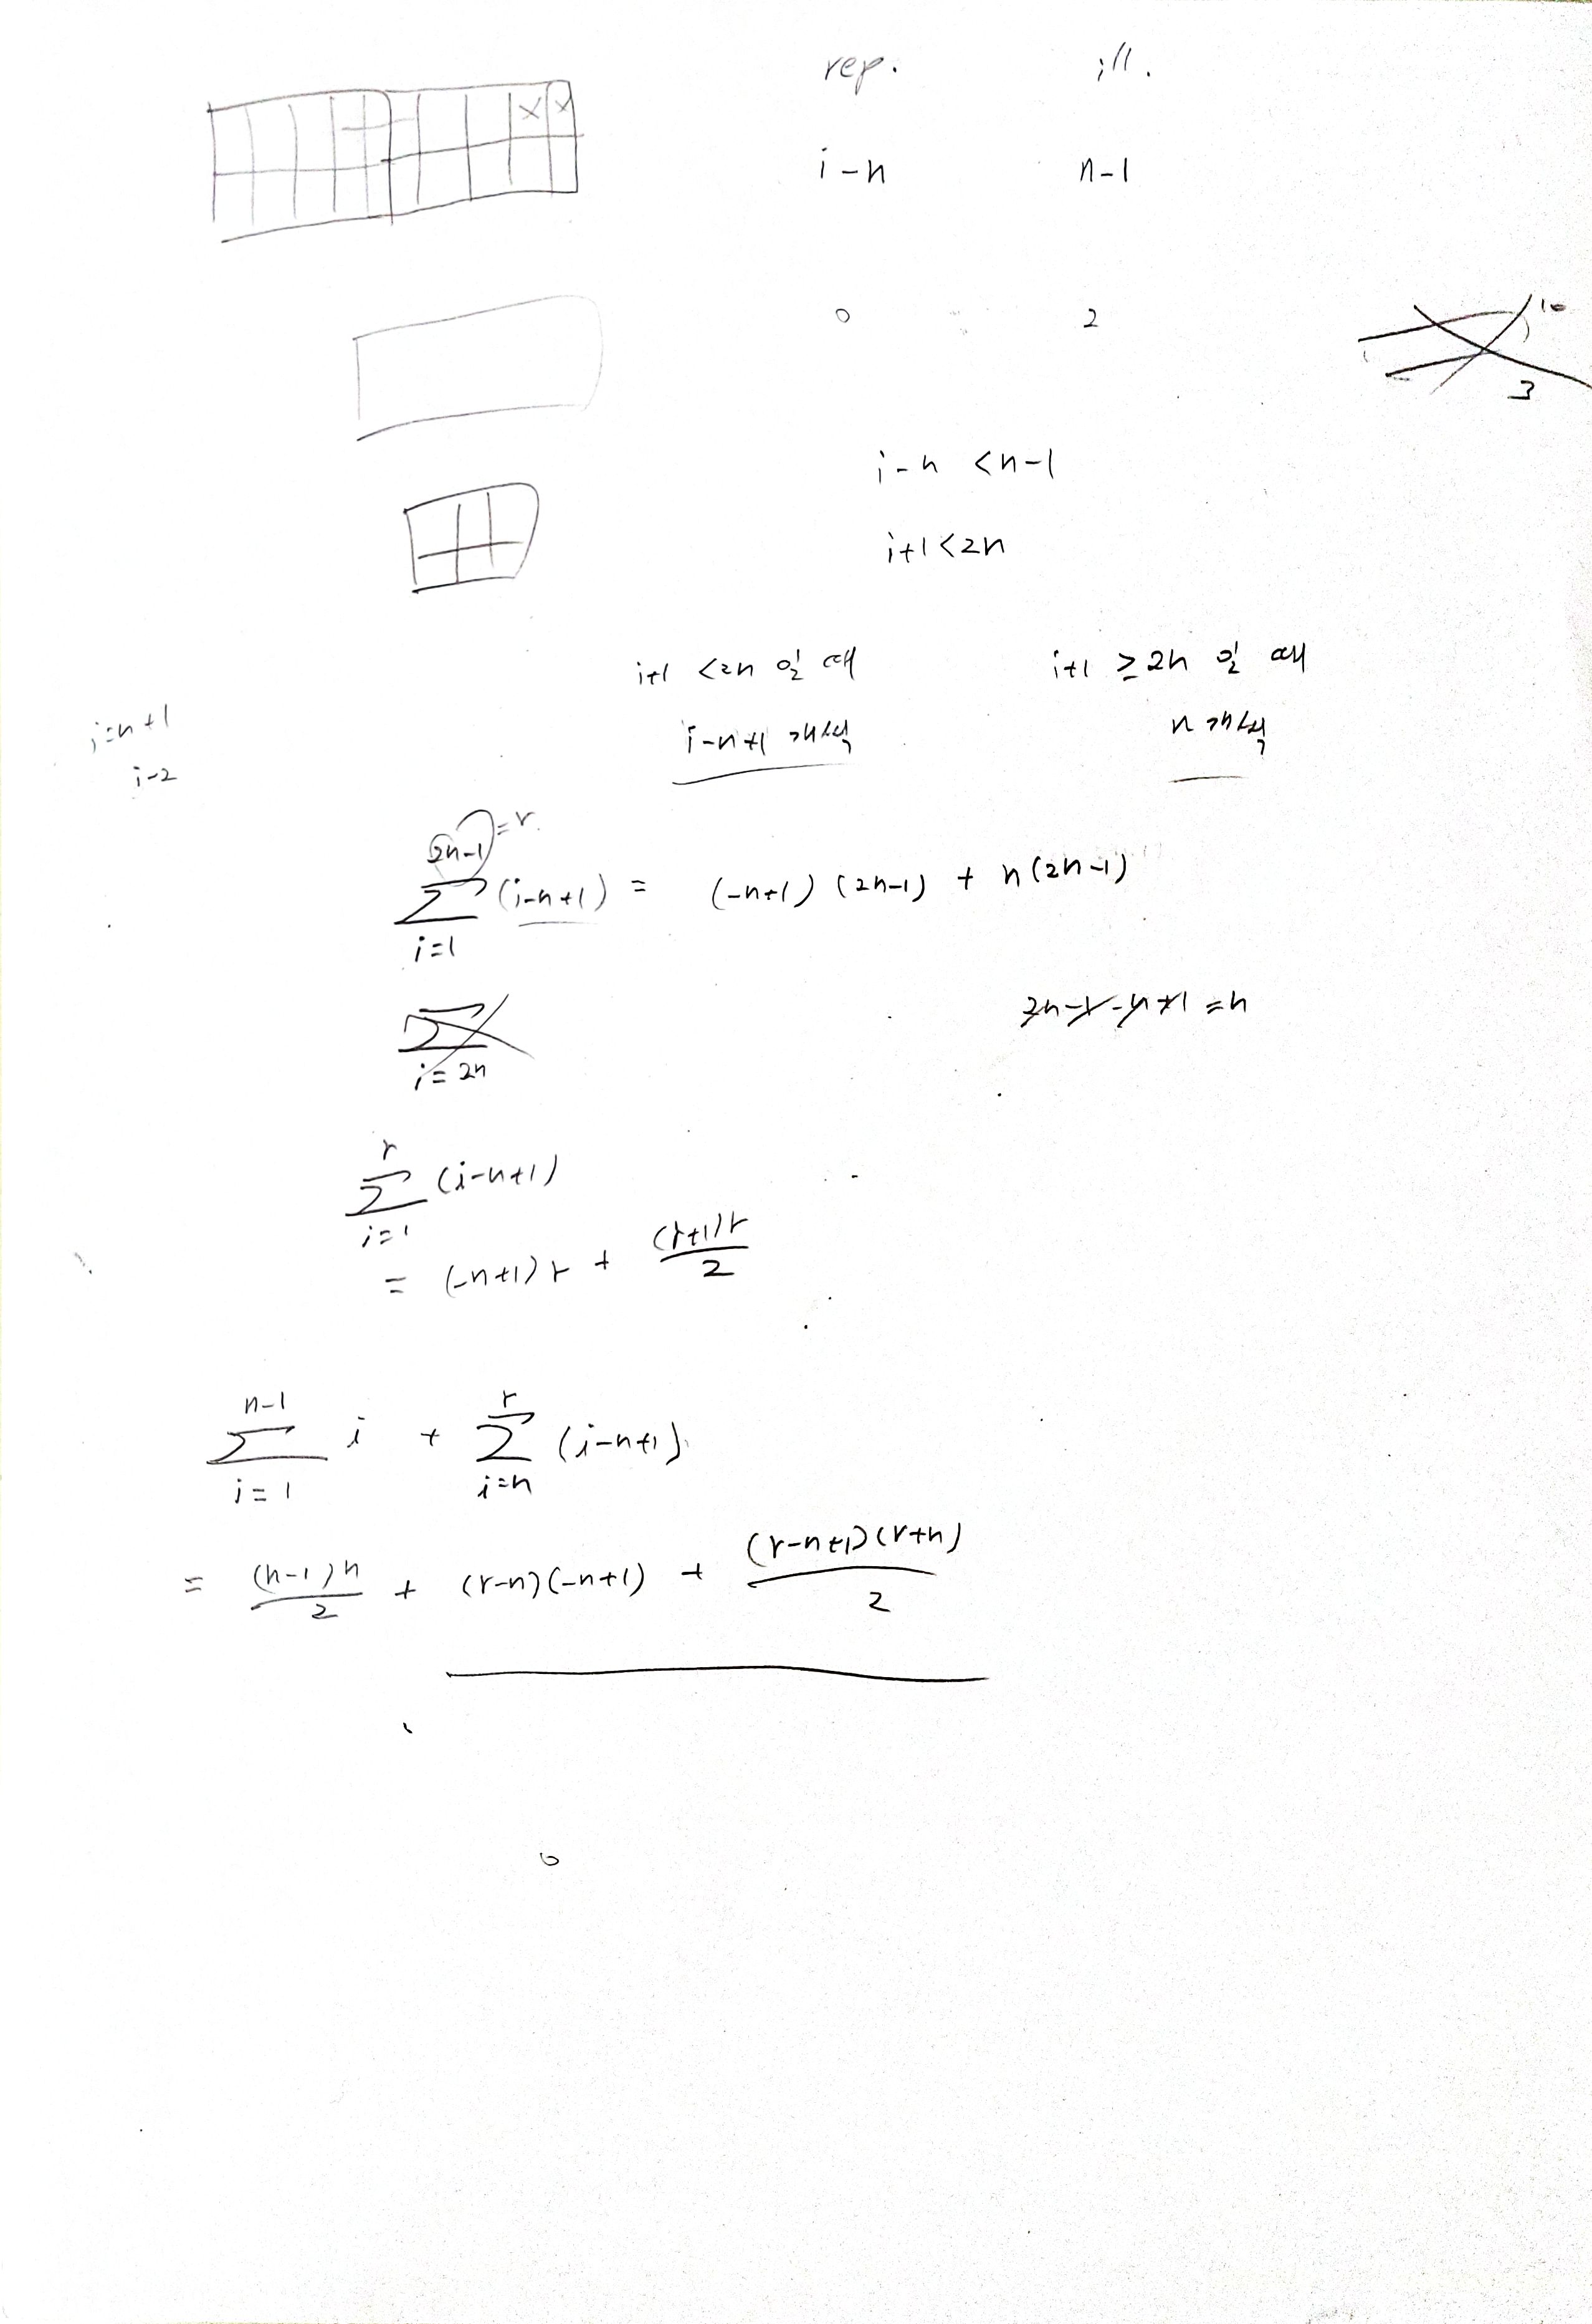 rep. ill.
i-n n-1
0 2
10
3
i-n <n-1
i+1<2n
i+1 <2n 일 때 i+1 ≥2n 일 때
i=n+1
i-n+1 개씩 n 개씩
i-2
2n-1 =r
∑ (i-n+1) = (-n+1) (2n-1) + n(2n-1)
i=1
2n-1-n+1 =n
∑
i=2n
r
∑ (i-n+1)
i=1
= (-n+1)r + (r+1)r/2
n-1 r
∑ i + ∑ (i-n+1)
i=1 i=n
= (n-1)n/2 + (r-n)(-n+1) + (r-n+1)(r+n)/2